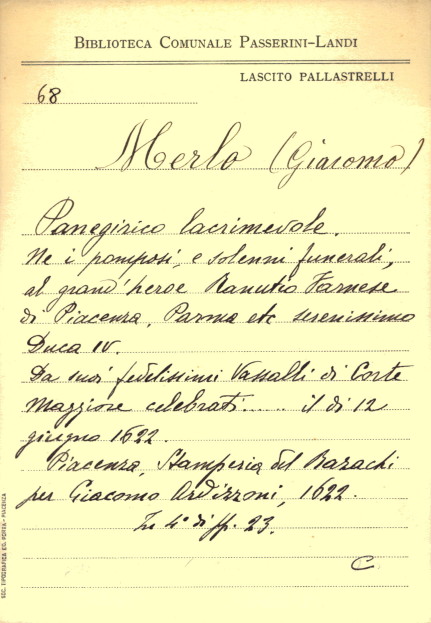 BIBLIOTECA COMUNALE PASSERINI-LANDI
LASCITO PALLASTRELLI
68
Merlo (Giacomo)
Panegirico lacrimevole.
Ne i pomposi, e solenni funerali,
al grand'heroe Ranutio Farnese
di Piacenza, Parma etc serenissimo
Duca IV.
Da suoi fedelissimi Vassalli di Corte
Maggiore celebrati..... il di 12
giugno 1622.
Piacenza, Stamperia del Bazachi
per Giacomo Ardizzoni, 1622.
In 4° di ff. 23.
C
SOC. TIPOGRAFICA ED. PORTA - PIACENZA